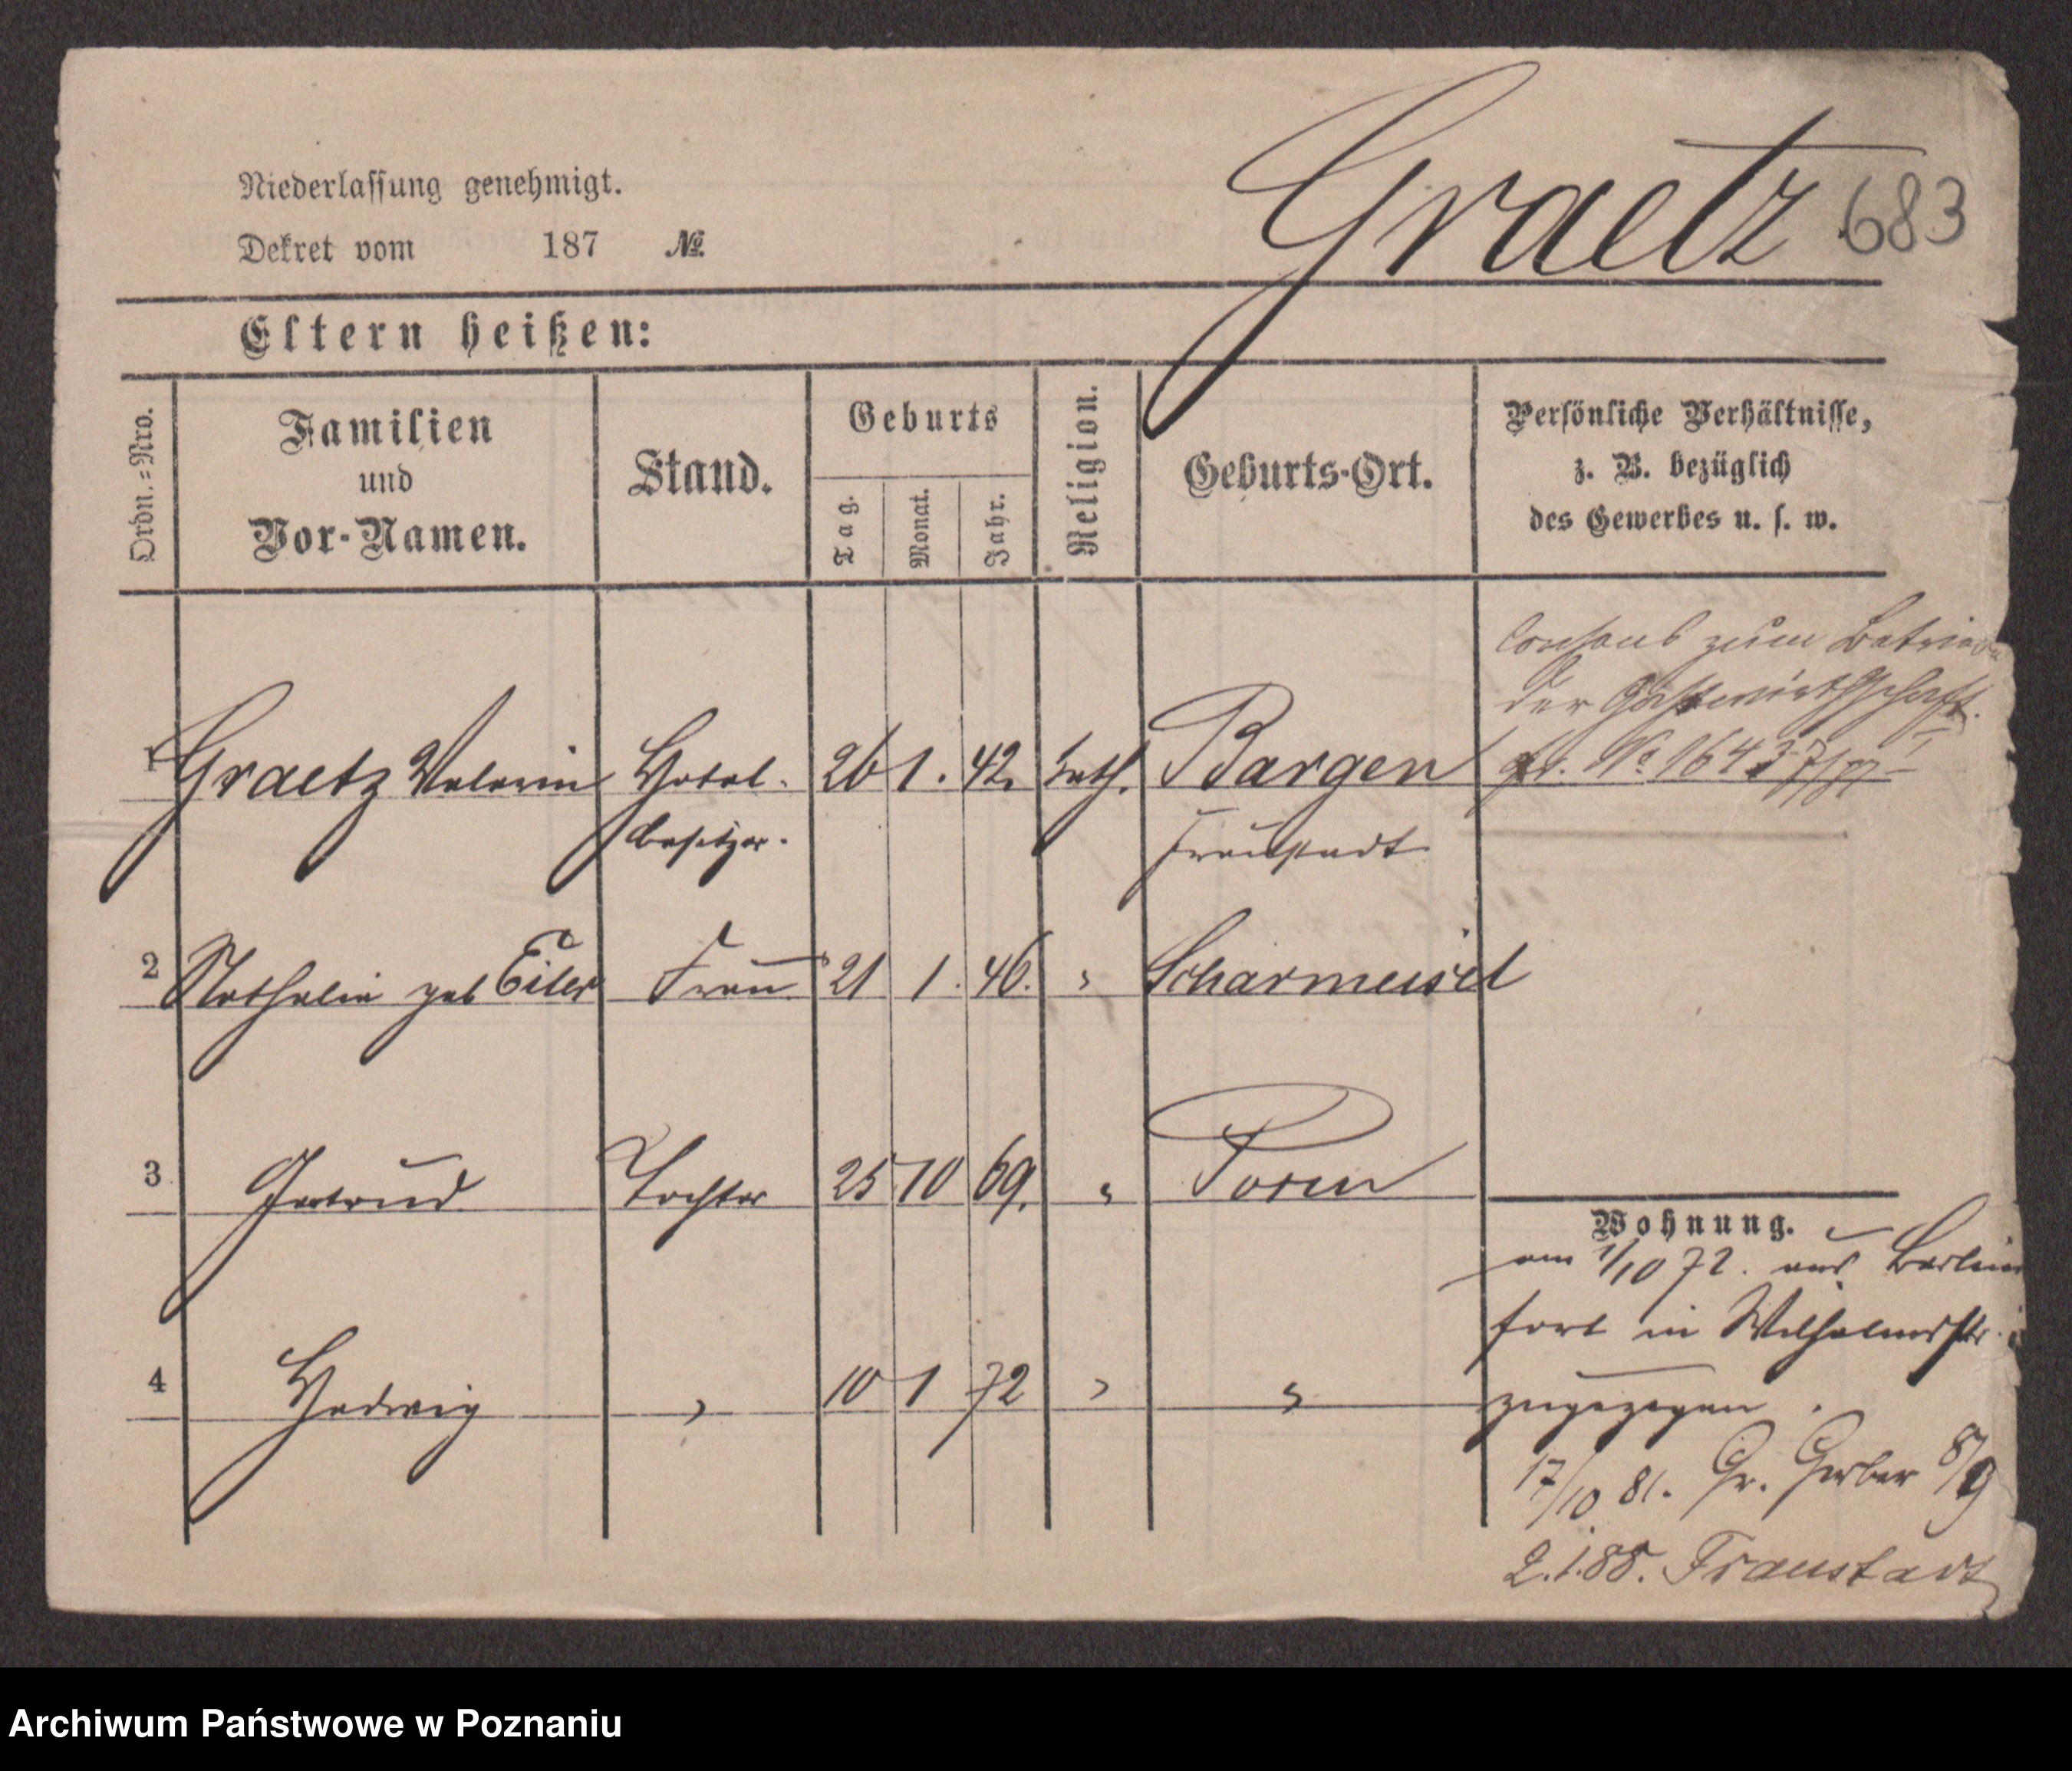 Graetz 683
Niederlassung genehmigt.
Dekret vom 187 №
Eltern heißen:
Ordn.-Nro.
Familien
und
Vor-Namen.
Stand.
Geburts
Tag.
Monat.
Jahr.
Religion.
Geburts-Ort.
Persönliche Verhältnisse,
z. B. bezüglich
des Gewerbes u. s. w.
Consens zum Betriebe
der Gastwirthschaft.
1 Graetz Valerin Hotel- 26 1. 42. kath. Bargen
besitzer. Fraustadt
2 Nathalie geb Eiler Frau 21 1. 46. " Scharmeisel
3 Gertrud Tochter 25 10 69. " Posen
4 Hedwig " 10 1 72 " "
Wohnung.
am 1/10 72. aus Berlin
fort in Wilhelmsstr.
zugezogen.
17/10 81. Gr. Gerber 8/9
2.1.88. Fraustadt
Archiwum Państwowe w Poznaniu